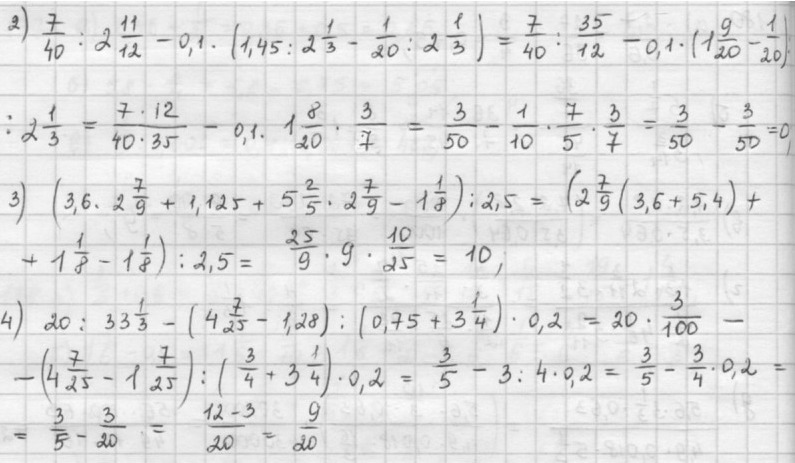 2) 7/40 : 2 11/12 - 0,1 · (1,45 : 2 1/3 - 1/20 : 2 1/3) = 7/40 : 35/12 - 0,1 · (1 9/20 - 1/20) :
: 2 1/3 = 7·12/40·35 - 0,1 · 1 8/20 · 3/7 = 3/50 - 1/10 · 7/5 · 3/7 = 3/50 - 3/50 = 0;
3) (3,6 · 2 7/9 + 1,125 + 5 2/5 · 2 7/9 - 1 1/8) : 2,5 = (2 7/9 (3,6 + 5,4) +
+ 1 1/8 - 1 1/8) : 2,5 = 25/9 · 9 · 10/25 = 10;
4) 20 : 33 1/3 - (4 7/25 - 1,28) : (0,75 + 3 1/4) · 0,2 = 20 · 3/100 -
- (4 7/25 - 1 7/25) : (3/4 + 3 1/4) · 0,2 = 3/5 - 3 : 4 · 0,2 = 3/5 - 3/4 · 0,2 =
= 3/5 - 3/20 = 12-3/20 = 9/20